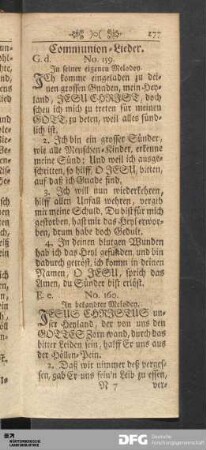 177
Communion-Lieder.
G. d. No. 159.
In seiner eigenen Melodey.
ICh komme eingeladen zu dei-
nen grossen Gnaden, mein Hey-
land, JESU CHRIST, doch
schen ich mich zu treten für meinen
GOTT, zu beten, weil alles sünd-
lich ist.
2. Ich bin ein grosser Sünder,
wie alle Menschen-Kinder, erkenne
meine Sünd; Und weil ich ausge-
schritten, so hilff, O JESU, bitten,
auf daß ich Gnade find.
3. Ich will nun wiederkehren,
hilff allen Unfall wehren, vergib
mir meine Schuld, Du bist für mich
gestorben, hast mir das Heyl erwor-
ben, drum habe doch Gedult.
4. In deinen blutgen Wunden
hab ich das Heyl gefunden, und bin
dadurch getröst, ich komm in deinen
Namen, O JESU, sprich das
Amen, du Sünder bist erlöst.
E. e. No. 160.
In bekandter Melodey.
JESUS CHRISTUS un-
ser Heyland, der von uns den
GOTTES Zorn wand, durch das
bitter Leiden sein, halff Er uns aus
der Höllen-Pein.
2. Daß wir nimmer deß verges-
sen, gab Er uns sein'n Leib zu essen,
N 7 ver-
DFG
Deutsche
Forschungsgemeinschaft